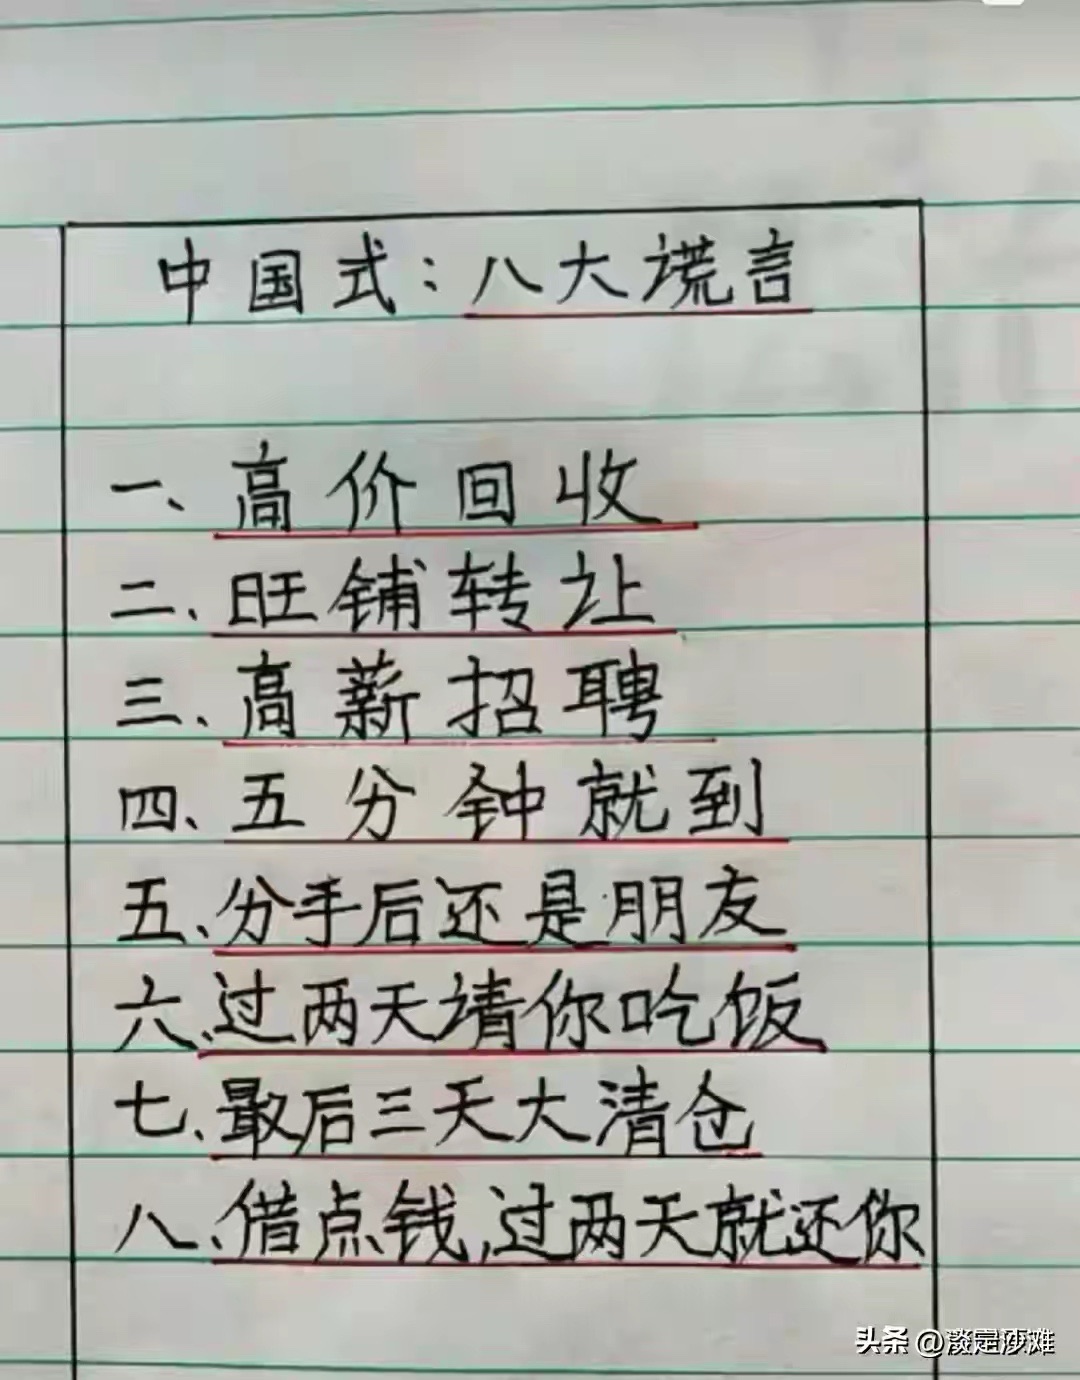 中国式：八大谎言
一、高价回收
二、旺铺转让
三、高薪招聘
四、五分钟就到
五、分手后还是朋友
六、过两天请你吃饭
七、最后三天大清仓
八、借点钱,过两天就还你
头条 @淡定沙滩